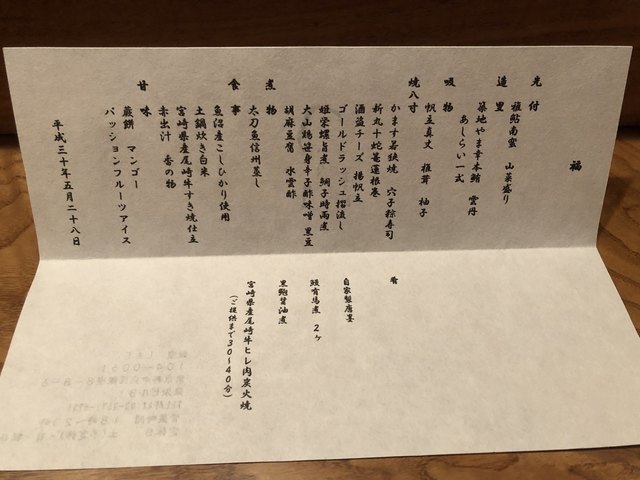 福
先付
稚鮎南蛮 山菜盛り
造里
築地やま幸本鮪 雲丹
あしらい一式
吸物
帆立真丈 椎茸 柚子
焼八寸
かます若狭焼 穴子粽寿司
新丸十蛇篭蓮根巻
酒盗チーズ 揚帆立
ゴールドラッシュ摺流し
姫栄螺旨煮 鯛子時雨煮
大山鶏笹身辛子酢味噌 黒豆
胡麻豆腐 水雲酢
煮物
太刀魚信州蒸し
食事
魚沼産こしひかり使用
土鍋炊き白米
宮崎県産尾崎牛すき焼仕立
赤出汁 香の物
甘味
蕨餅 マンゴー
パッションフルーツアイス
平成三十年五月二十八日
肴
自家製唐墨
鰻有馬煮 2ヶ
黒鮑醤油煮
宮崎県産尾崎牛ヒレ肉炭火焼
(ご提供まで30〜40分)